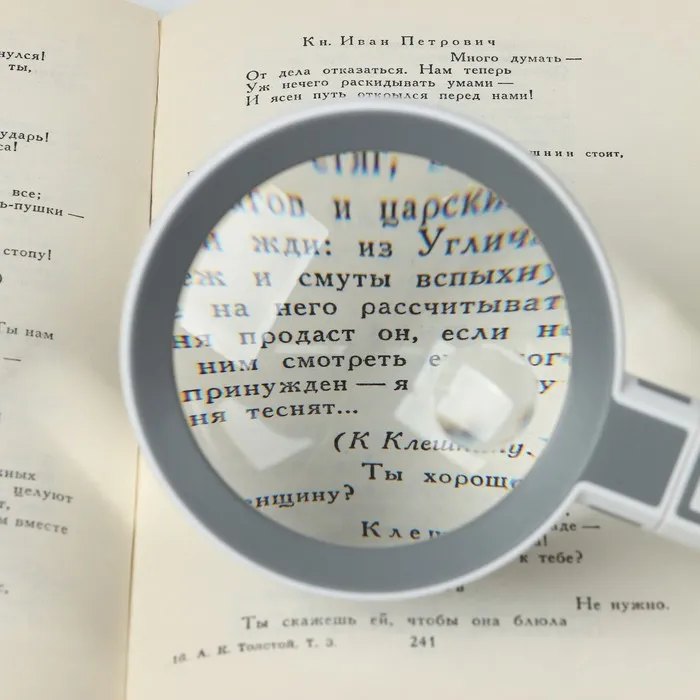 нулся!
ты,
ударь!
са!
все;
ь-пушки —
стопу!
Ты нам
—
целуют
м вместе
Кн. Иван Петрович
Много думать —
От дела отказаться. Нам теперь
Уж нечего раскидывать умами —
И ясен путь открылся перед нами!
стоит,
и царски
жди: из Углич
еж и смуты вспыхну
на него рассчитыват
ня продаст он, если н
ним смотреть
принужден — я
ня теснят...
(К Клешнину.)
Ты хорошо
енщину?
Клеш
к тебе?
Не нужно.
Ты скажешь ей, чтобы она блюла
А. К. Толстой, т. 3. 241